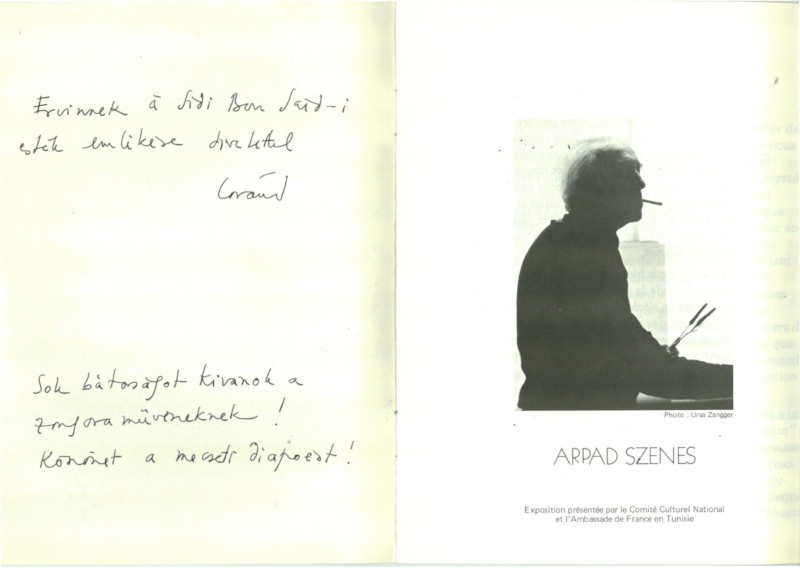 Ervinnek a Sidi Bou Saïd-i
esték emlékére
Loránd
Sok bátorságot kivanok a
zongoraművéneknek !
Köszönet a mecseti diapoért !
Photo : Ursa Zangger
ARPAD SZENES
Exposition présentée par le Comité Culturel National
et l'Ambassade de France en Tunisie